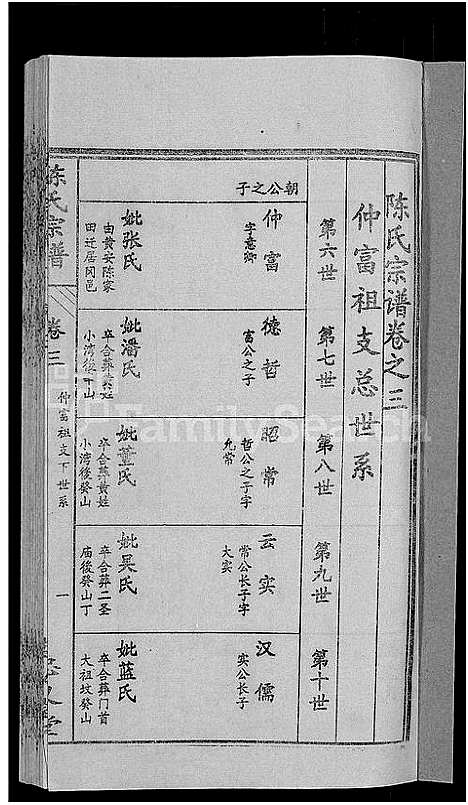 陈氏宗谱卷之三
仲富祖支总世系
第六世
第七世
第八世
第九世
第十世
朝公之子
仲富
字意卿
妣张氏
由黄安陈家
田迁居冈邑
德哲
富公之子
妣潘氏
卒合葬黄姓
小湾後丁山
昭常
哲公之子字
允常
妣董氏
卒合葬黄姓
小湾後癸山
云实
常公长子字
大实
妣吴氏
卒合葬二圣
庙後癸山丁
汉儒
实公长子
妣蓝氏
卒合葬门首
大祖坟癸山
陈氏宗谱
卷三
仲富祖支下世系
一
FamilySearch